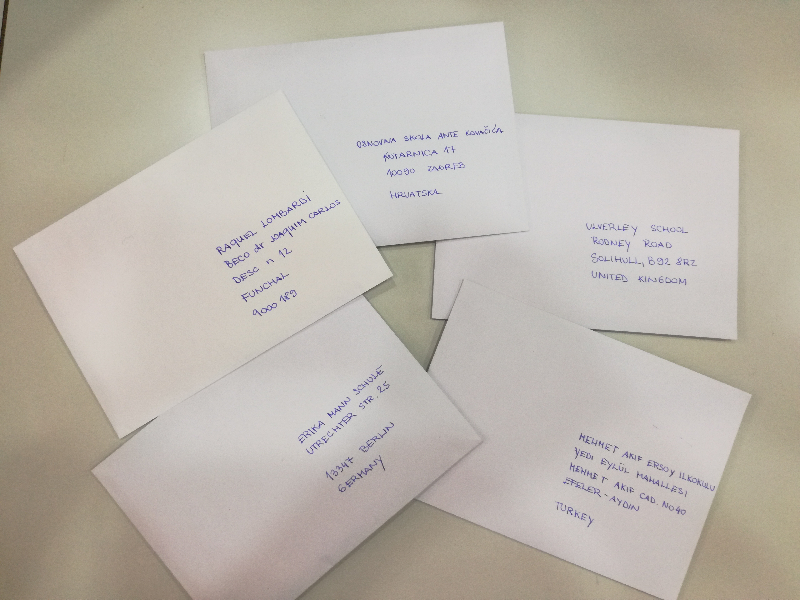 OSNOVNA SKOLA ANTE KOVAČIĆA
ŠVIARNICA 17
10090 ZAGREB
HRVATSKA
RAQUEL LOMBARDI
BECO dr JOAQUIM CARLOS
DESC n 12
FUNCHAL
9000 189
ULVERLEY SCHOOL
RODNEY ROAD
SOLIHULL, B92 8RZ
UNITED KINGDOM
ERIKA MANN SCHULE
UTRECHTER STR. 25
13347 BERLIN
GERMANY
MEHMET AKIF ERSOY ILKOKULU
YEDI EYLÜL MAHALLESI
MEHMET AKIF CAD. NO40
EFELER-AYDIN
TURKEY